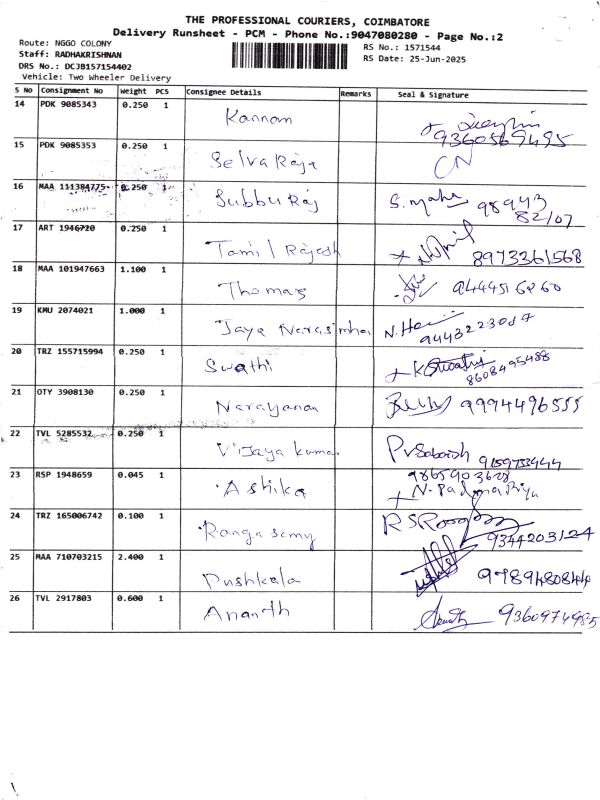 THE PROFESSIONAL COURIERS, COIMBATORE
Delivery Runsheet - PCM - Phone No.:9047080280 - Page No.:2
Route: NGGO COLONY
Staff: RADHAKRISHNAN
DRS No.: DCJB157154402
Vehicle: Two Wheeler Delivery
RS No.: 1571544
RS Date: 25-Jun-2025
S No Consignment No Weight PCS Consignee Details Remarks Seal & Signature
14 PDK 9085343 0.250 1 Kannam 9360569495
15 PDK 9085353 0.250 1 Selva Raja CN
16 MAA 111384775 0.250 1 Subbu Raj S. Maha 98943 82107
17 ART 1946720 0.250 1 Tamil Rajesh 8973361568
18 MAA 101947663 1.100 1 Thomas 9444516260
19 KMU 2074021 1.000 1 Jaya Narasimhan 9443223087
20 TRZ 155715994 0.250 1 Swathi K Swathi 8608495488
21 OTY 3908130 0.250 1 Narayanan 9994496555
22 TVL 5285532 0.250 1 Vijaya kumar 9159753444
23 RSP 1948659 0.045 1 Ashika 9865903628 N. Padma Priya
24 TRZ 165006742 0.100 1 Ranga samy 9344203124
25 MAA 710703215 2.400 1 Pushkala
26 TVL 2917803 0.600 1 Ananth 9360974985